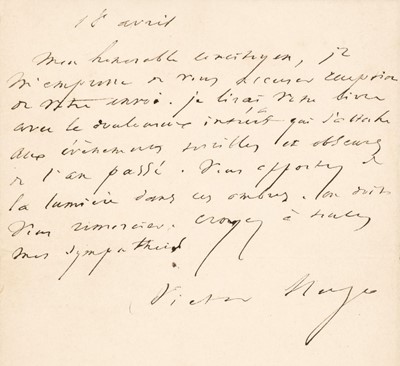 18 avril
Mon honorable concitoyen, je
m'empresse de vous accuser réception
de votre envoi. je lirai votre livre
avec le douloureux intérêt qui s'attache
aux événements terribles et obscurs
de l'an passé. Vous apportez de
la lumière dans ces ombres. on doit
vous remercier. croyez à toutes
mes sympathies
Victor Hugo